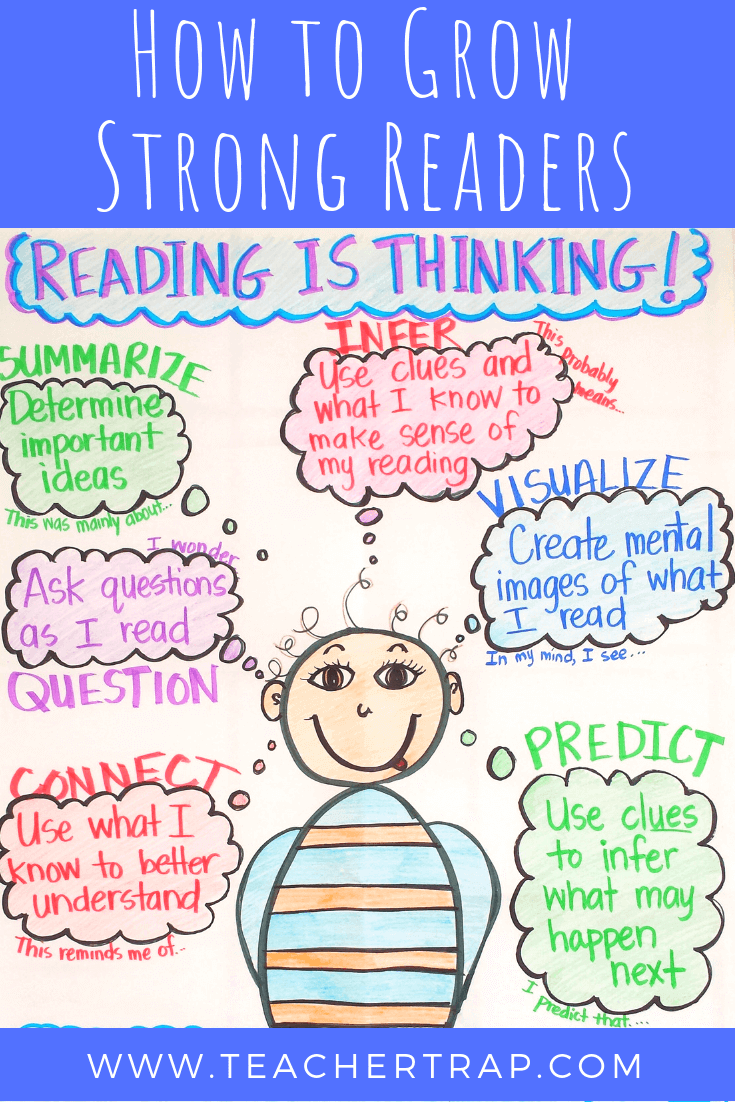 How to Grow
Strong Readers
READING IS THINKING!
SUMMARIZE
Determine
important
ideas
This was mainly about...
INFER
Use clues and
what I know to
make sense of
my reading
This probably
means...
VISUALIZE
Create mental
images of what
I read
In my mind, I see...
I wonder
Ask questions
as I read
QUESTION
CONNECT
Use what I
know to better
understand
This reminds me of...
PREDICT
Use clues
to infer
what may
happen
next
I predict that....
WWW.TEACHERTRAP.COM